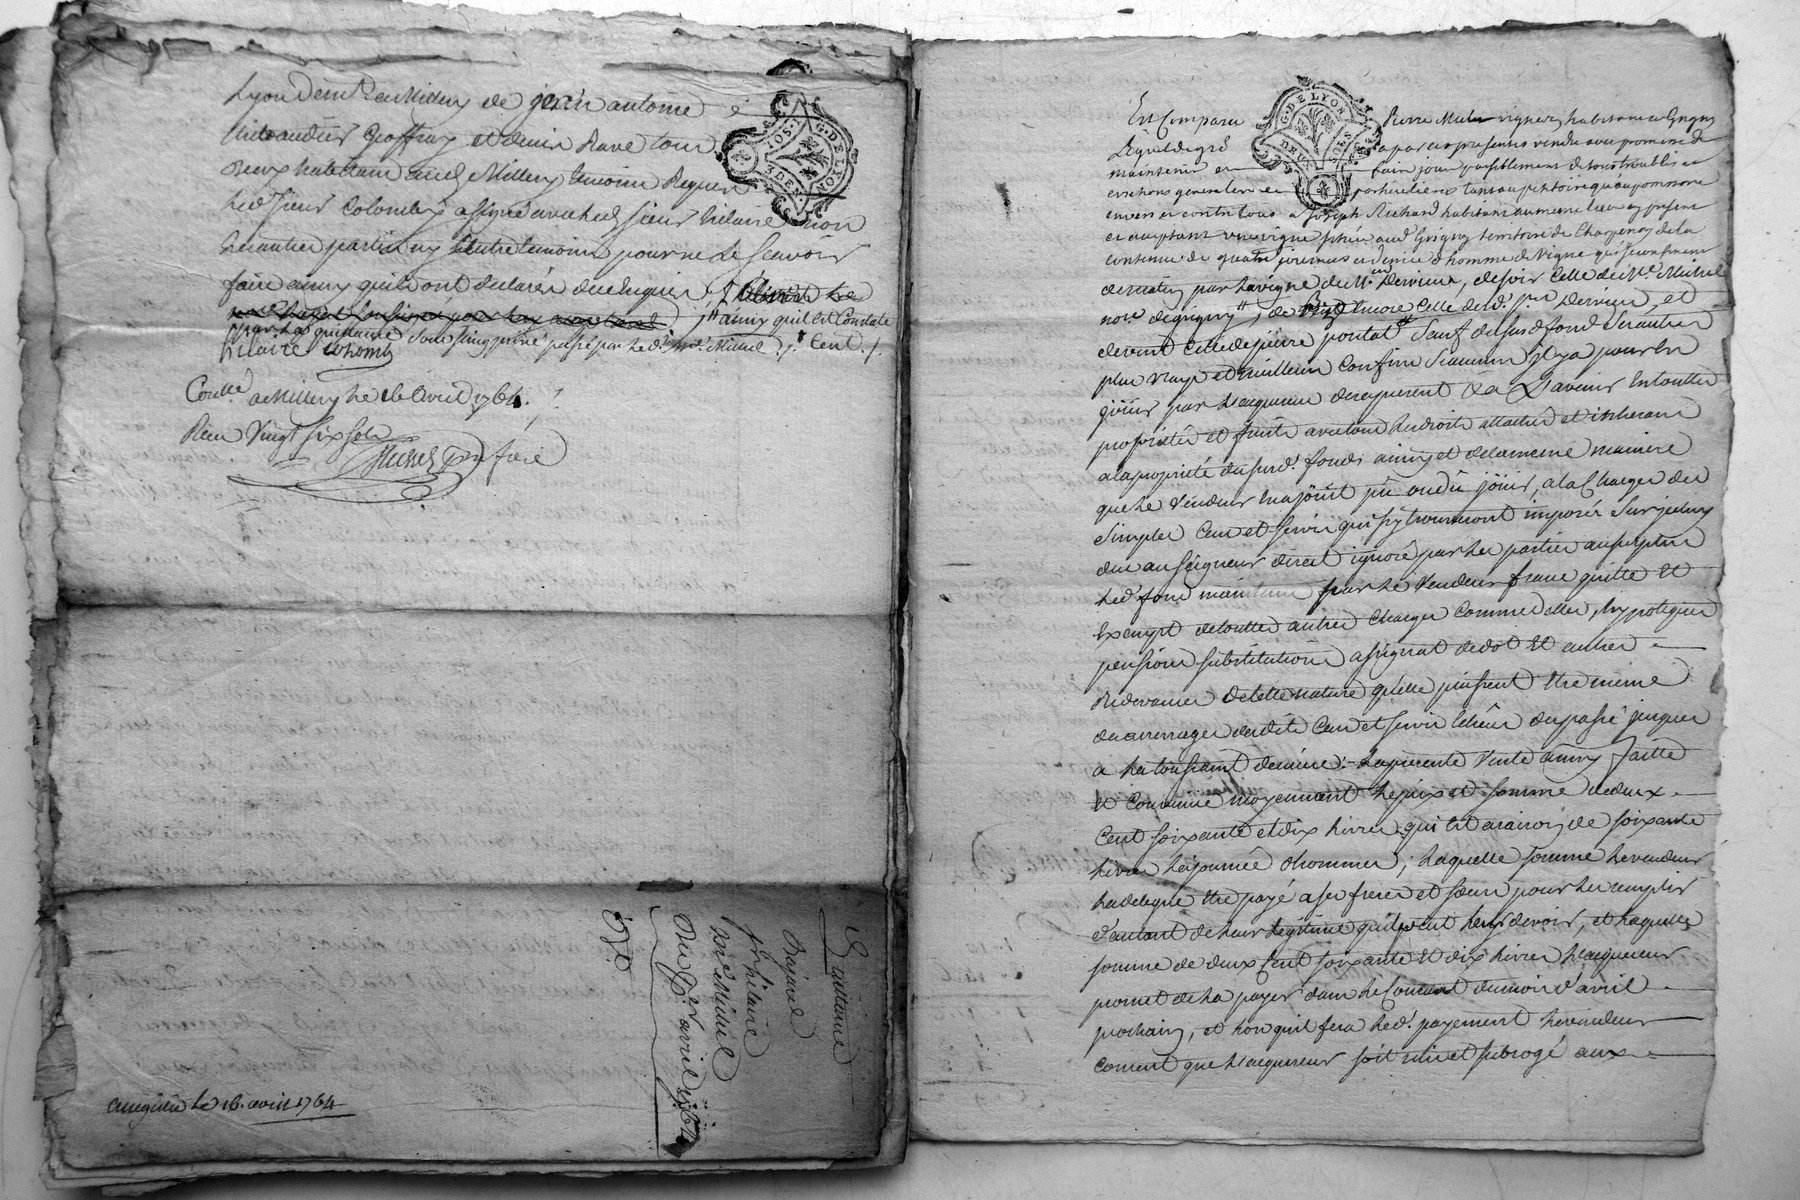 Lyon demt a Millery de jean antoine
Geoffray et denis Rave tous
deux habitans aud Millery temoins Requis
led sieur Colombs a signé avec led sieur hilaire non
partie ny l'autre temoin pour ne le scavoir
faire ainsy qu'ils ont déclarés de ce enquis
ainsy quil est Constaté
par la quittance Sous seing privé passé par led. Me Michel j. Cent. /.
hilaire Colomb
Conllé a Millery le 16 avril 1764.
Reçu Vingt six sols
Michel
G. DE LYON
DEUX SOLS
Quittance
Bajard
hilaire
Me Michel
Du avril 1764
Enregistré le 16. avril 1764
G. DE LYON
DEUX SOLS
Est Comparu Pierre vigneron habitant a Grigny
Lequel de gré a par ces presentes vendu avec promesse de
maintenir et faire jouir paisiblement de tous troubles et
evictions generales et particulieres tant au petitoire qu'au possessoire
envers et contre tous a Joseph Richard habitant au meme lieu cy present
et acceptant une vigne située aud Grigny territoire de Charpenay de la
contenue de quatre journées et demie d'homme de vigne qui se confine
de matin par la vigne de Mr. Dervieux, de soir celle de Me. Michel
nore. de grigny, de Bize encore celle dud. sr. Dervieux, et
de vent celle de pierre sauf dud. fond Ses autres
plus vrays et meilleurs confins si aucuns il y a pour en
jöüir par l'acquereur des a present & a L'avenir en toutte
proprieté et fruits avec tous les droits attachés et inherans
a la proprieté dususd. fonds ainsy et de la meme maniere
que le Vendeur en a jöüit pû ou dû jöüir, a la Charge des
Simples Cens et servis qui s'y trouveront imposés Sur jceluy
dus au Seigneur direct ignoré par les parties au surplus
led. fond maintenu par le Vendeur franc quitte et
Exempt de touttes autres Charges comme dettes, hypoteques
pensions substitutions assignat de dot et autres
Redevances de telle nature qu'elle puissent etre meme
des arrerages desdits Cens et servis échûs du passé jusques
a la toussaint derniere :- La presente Vente ainsy faitte
et convenüe moyennant le prix et somme de deux
Cent soixante et dix livres qui est a raison de soixante
livres la journée d'hommes ; laquelle somme le vendeur
la delegue etre payé a ses freres et sœurs pour les remplir
d'autant de leurs legitime qu'il peut leurs devoir, et laquelle
somme de deux Cent soixante et dix livres l'acquereur
promet de la payer dans le Courant du mois d'avril
prochain, et lors quil fera led. payement le vendeur
consent que l'acquereur soit mis et subrogé aux